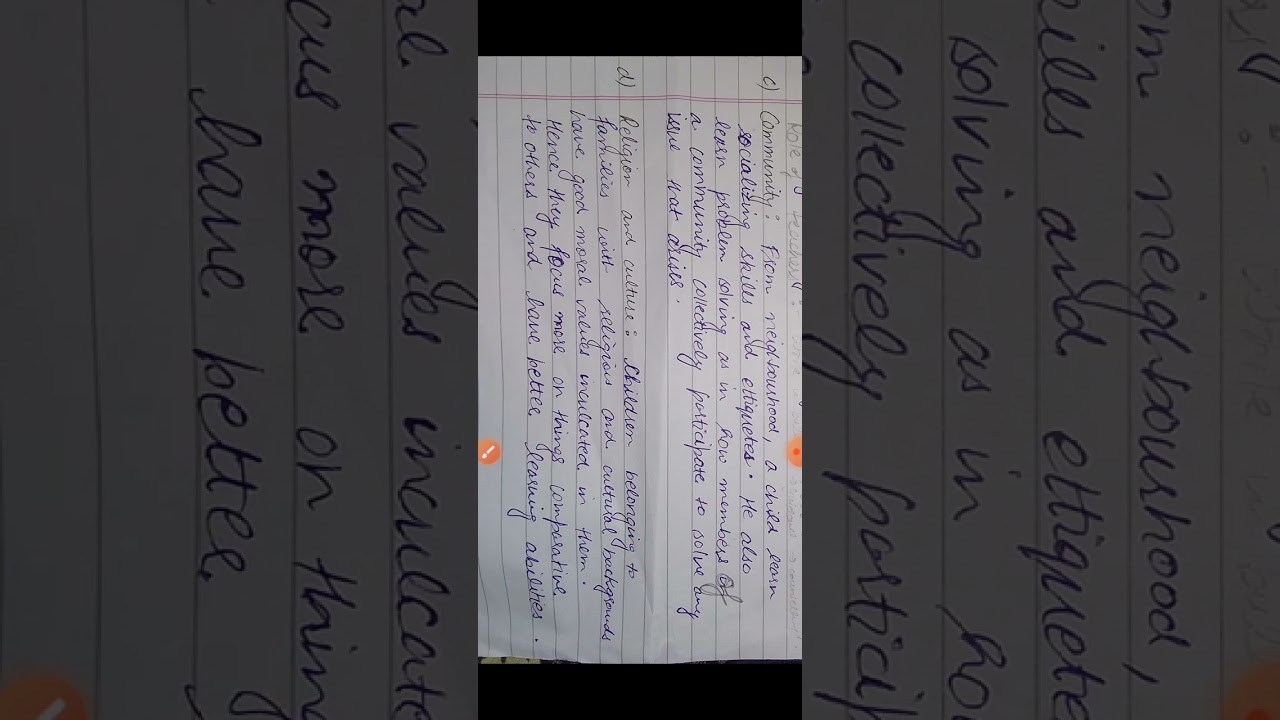 c) Community: From neighbourhood, a child learn
socializing skills and ettiquetes. He also
learn problem solving as in how members of
a community collectively participate to solve any
issue that arises.
d) Religion and culture: Children belonging to
families with religious and cultural backgrounds
have good moral values inculcated in them.
Hence they focus more on things comparative
to others and have better learning abilities.